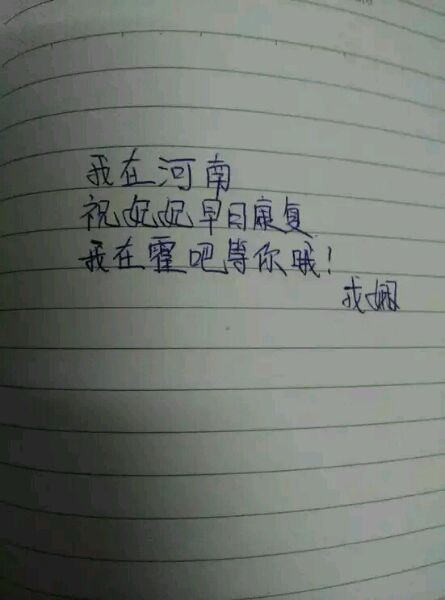 我在河南
祝妃妃早日康复
我在霍吧等你哦!
戎姻